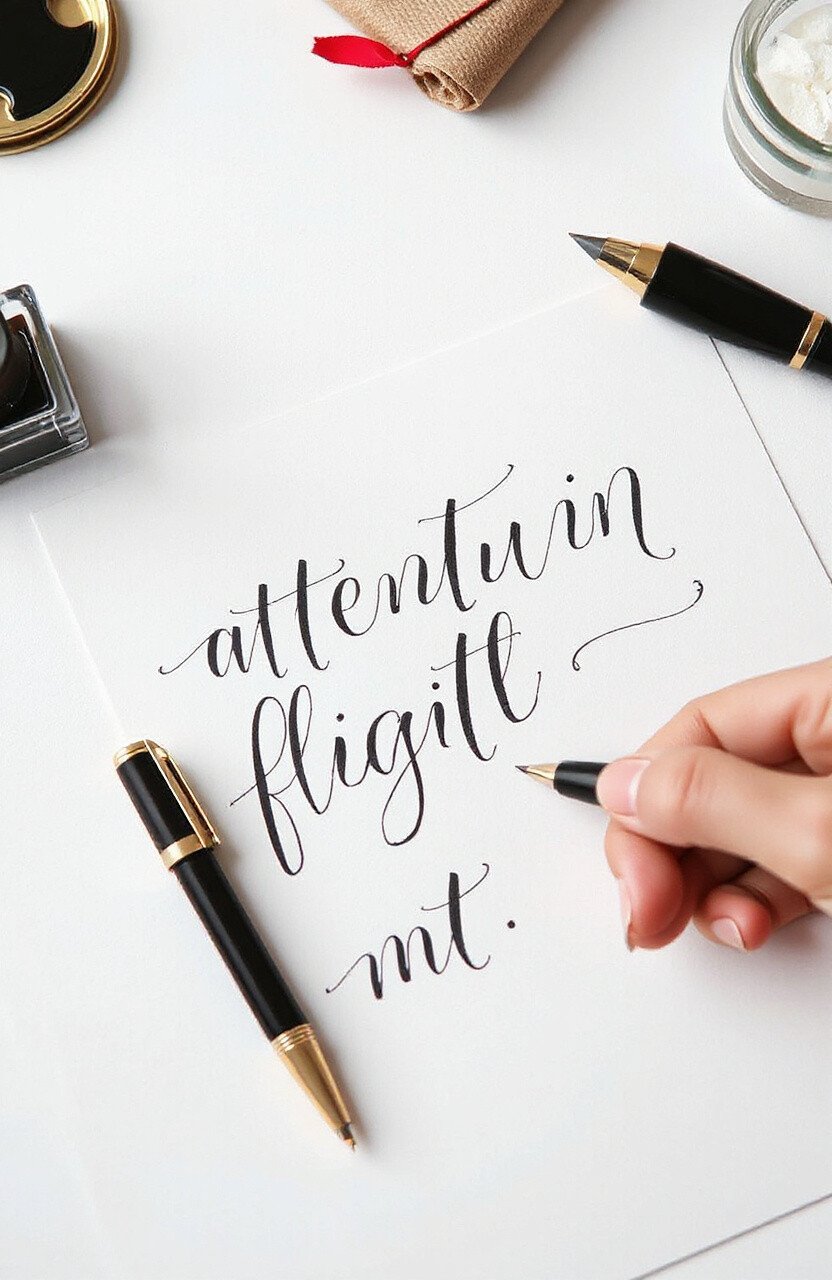 attentuin
fligitl
mt.